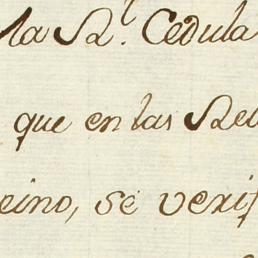 la Rl. Cedula
que en las Rel
eino, se verif